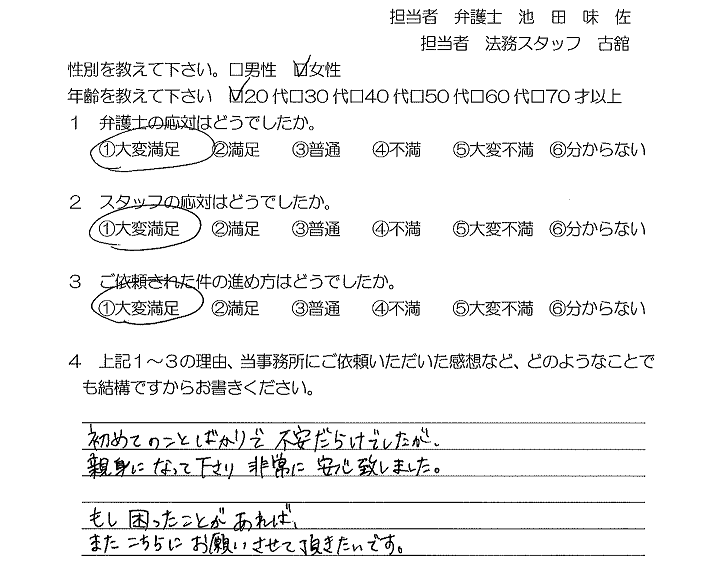 担当者 弁護士 池 田 味 佐
担当者 法務スタッフ 古舘
性別を教えて下さい。□男性 ☑女性
年齢を教えて下さい ☑20代□30代□40代□50代□60代□70才以上
1 弁護士の応対はどうでしたか。
①大変満足 ②満足 ③普通 ④不満 ⑤大変不満 ⑥分からない
2 スタッフの応対はどうでしたか。
①大変満足 ②満足 ③普通 ④不満 ⑤大変不満 ⑥分からない
3 ご依頼された件の進め方はどうでしたか。
①大変満足 ②満足 ③普通 ④不満 ⑤大変不満 ⑥分からない
4 上記1～3の理由、当事務所にご依頼いただいた感想など、どのようなことで
も結構ですからお書きください。
初めてのことばかりで 不安だらけでしたが、
親身になって下さり 非常に 安心致しました。
もし 困ったことが あれば、
また こちらに お願いさせて頂きたいです。